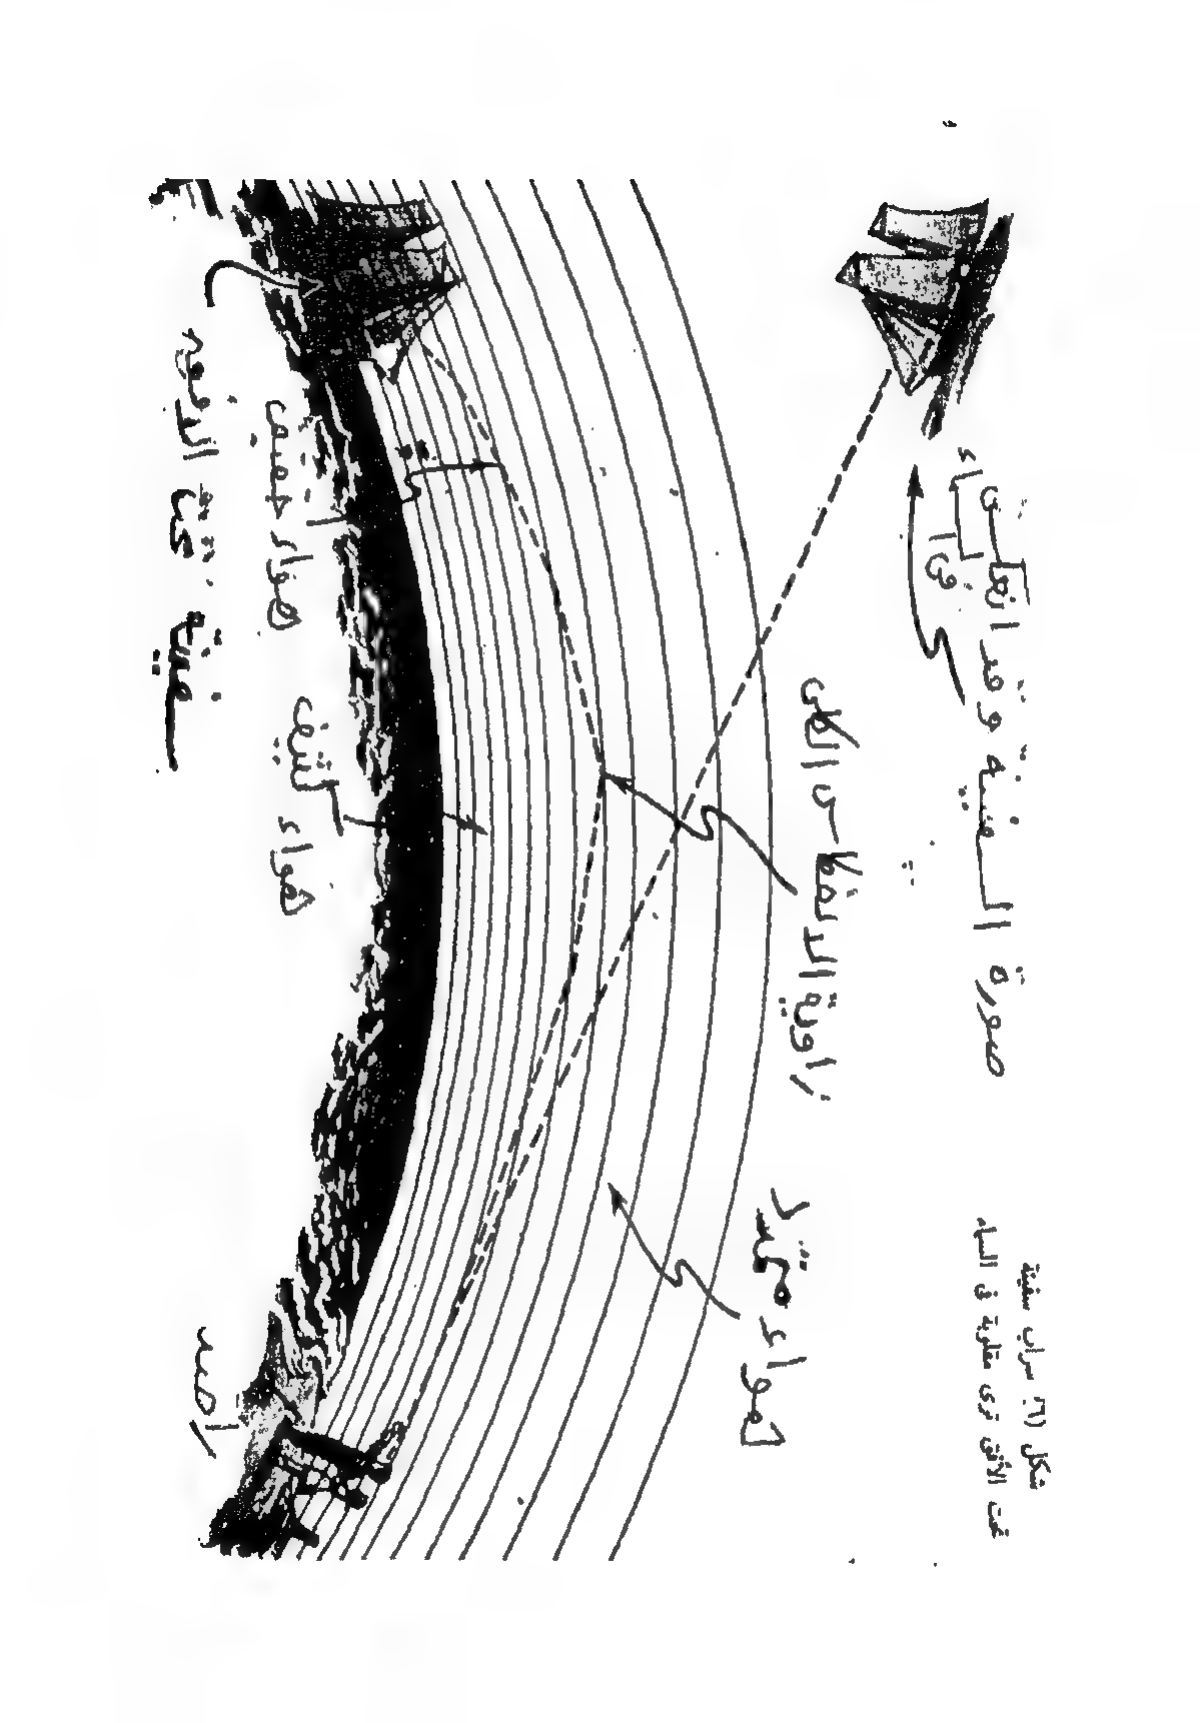 صورة السفينة وقد انعكست
في الماء
زاوية الانعكاس الكلي
هواء متمدد
هواء كثيف
سفينة تحت الأفق
راصد
شكل (٦) سراب سفينة
تحت الأفق ترى مقلوبة في السماء